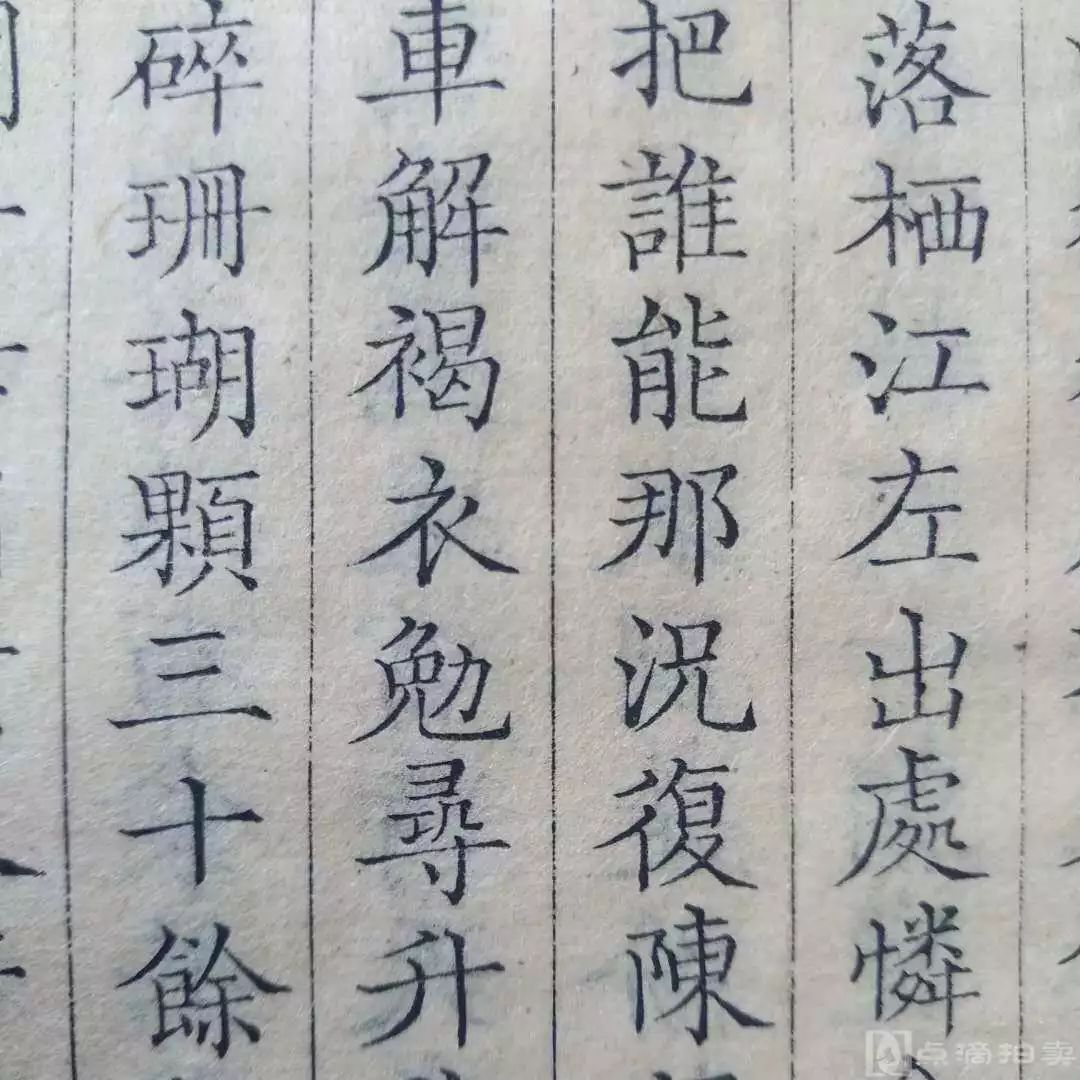 落栖江左出處憐
把誰能那況復陳
車解褐衣勉尋升
碎珊瑚顆三十餘
点滴拍卖